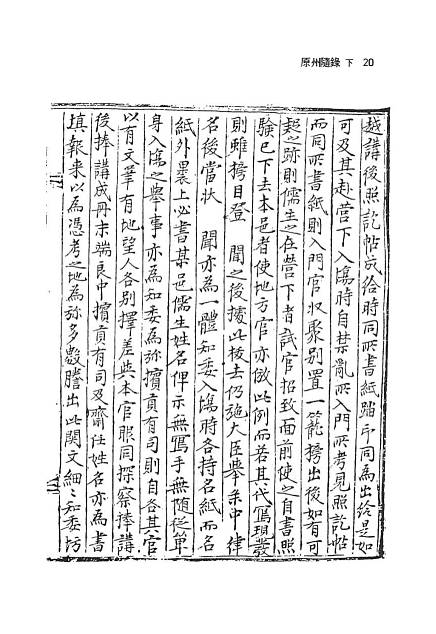 原州隨錄 下 20
越講後照訖帖成給時同所書紙踏印同為出給是如
可及其赴营下入塲時自禁亂所入門所考見照訖帖
而同所書紙則入門官収聚別置一籠榜出後如有可
疑之跡則儒生之在营下者試官招致面前使之自書照
驗已下去本邑者使地方官亦倣此例而若其代寫現發
則雖榜目登 聞之後據此拔去仍施大臣舉条中律
名後當状 聞亦為一體知委入塲時各持名紙而名
紙外裹上必書某邑儒生姓名俾示無寫手無随從單
身入塲之舉事亦為知委為弥擯貢有司則自各其官
以有文筆有地望人各別擇差與本官眼同探察捧講
後捧講成冊末端良中擯貢有司及齋任姓名亦為書
填報来以為憑考之地為弥多數謄出此関文細〻知委坊